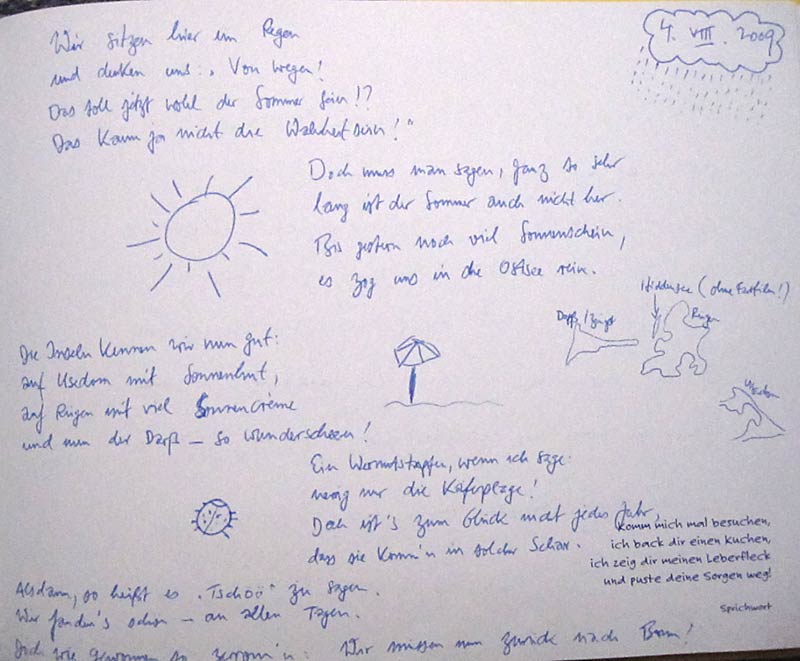 4. VIII. 2009
Wir sitzen hier im Regen
und denken uns: „Von wegen!
Das soll jetzt wohl der Sommer sein!?
Das kann ja nicht die Wahrheit sein!"
Doch muss man sagen, ganz so sehr
lang ist der Sommer auch nicht her.
Bis gestern noch viel Sonnenschein,
es zog uns in die Ostsee rein.
Hiddensee (ohne Farbfilm!)
Darß/Zingst
Rügen
Usedom
Die Inseln kennen wir nun gut:
auf Usedom mit Sonnenhut,
auf Rügen mit viel Sonnencrème
und nun der Darß – so wunderscheen!
Ein Wermutstropfen, wenn ich sage:
nervig nur die Käferplage!
Doch ist's zum Glück nicht jedes Jahr,
dass sie komm'n in solcher Schar.
Komm mich mal besuchen,
ich back dir einen Kuchen,
ich zeig dir meinen Leberfleck
und puste deine Sorgen weg!
Sprichwort
Alsdann, so heißt es „Tschöö" zu sagen.
Wir fanden's schön – an allen Tagen.
Doch wie gewonnen so zerronn'n: Wir müssen nun zurück nach Bonn!